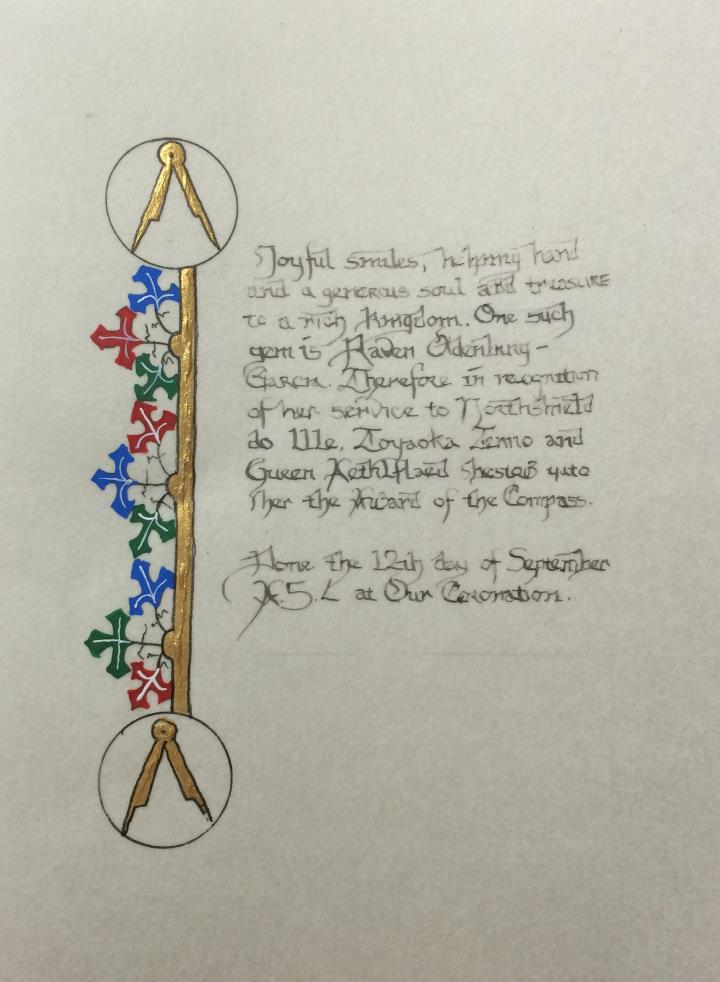 Joyful smiles, helping hand
and a generous soul add treasure
to a rich Kingdom. One such
gem is Raven
Garcia. Therefore in recognition
of her service to Northshield
do We, Toyaoka Tenno and
Queen Aethelflaed bestow unto
her the Award of the Compass.
Done the 12th day of September
A.S. L at Our Coronation.